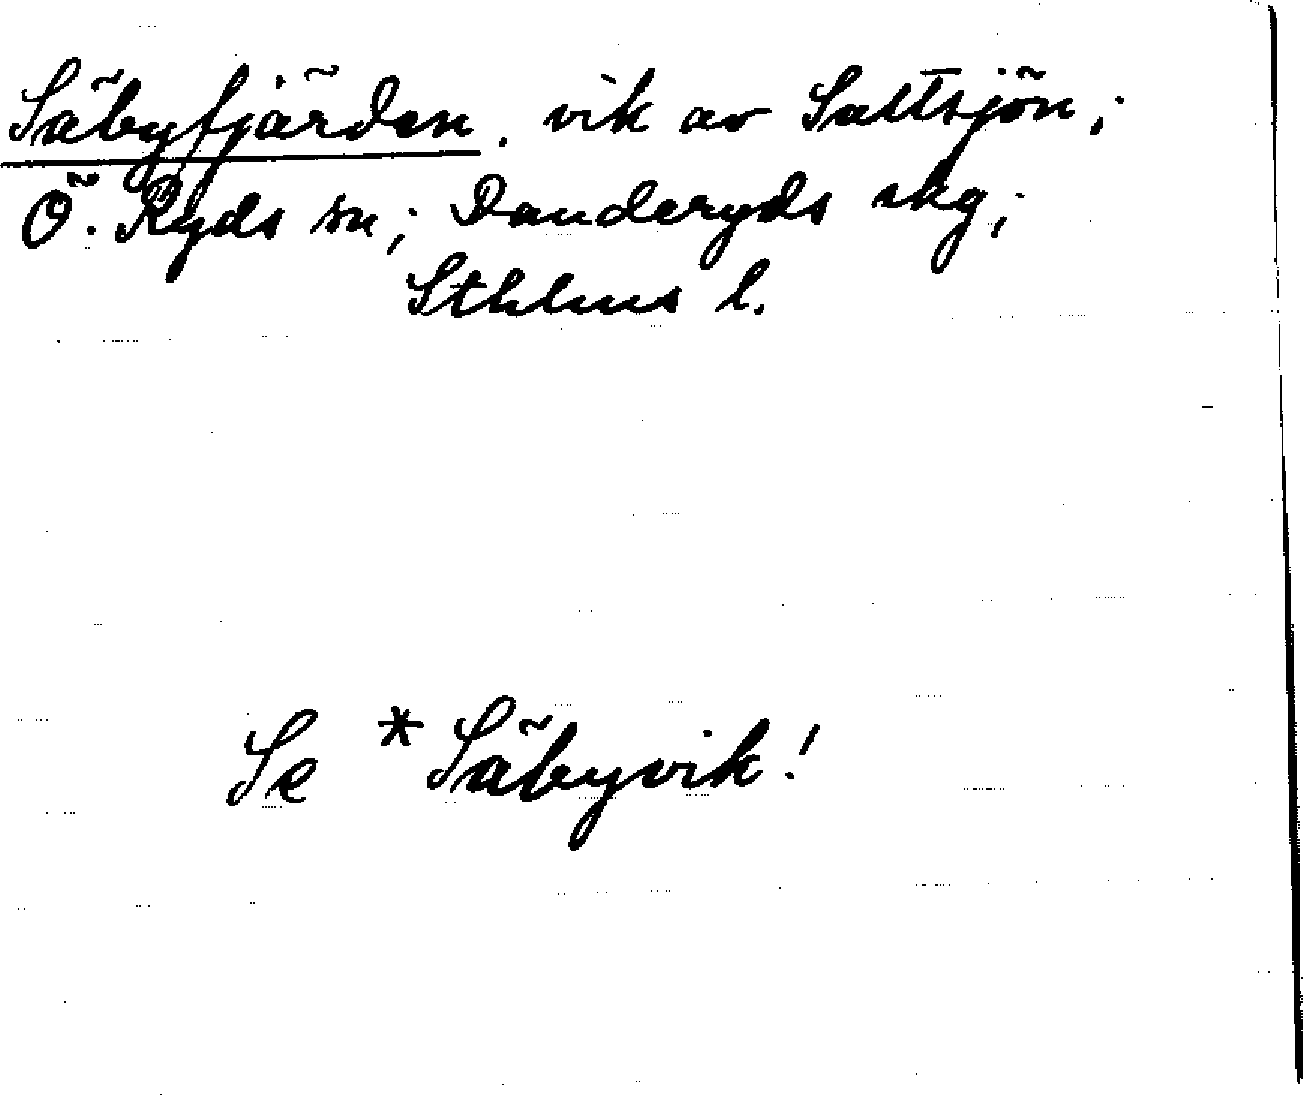 Säbyfjärden, vik av Saltsjön;
Ö. Ryds sn; Danderyds skg;
Sthlms l.
Se *Säbyvik!